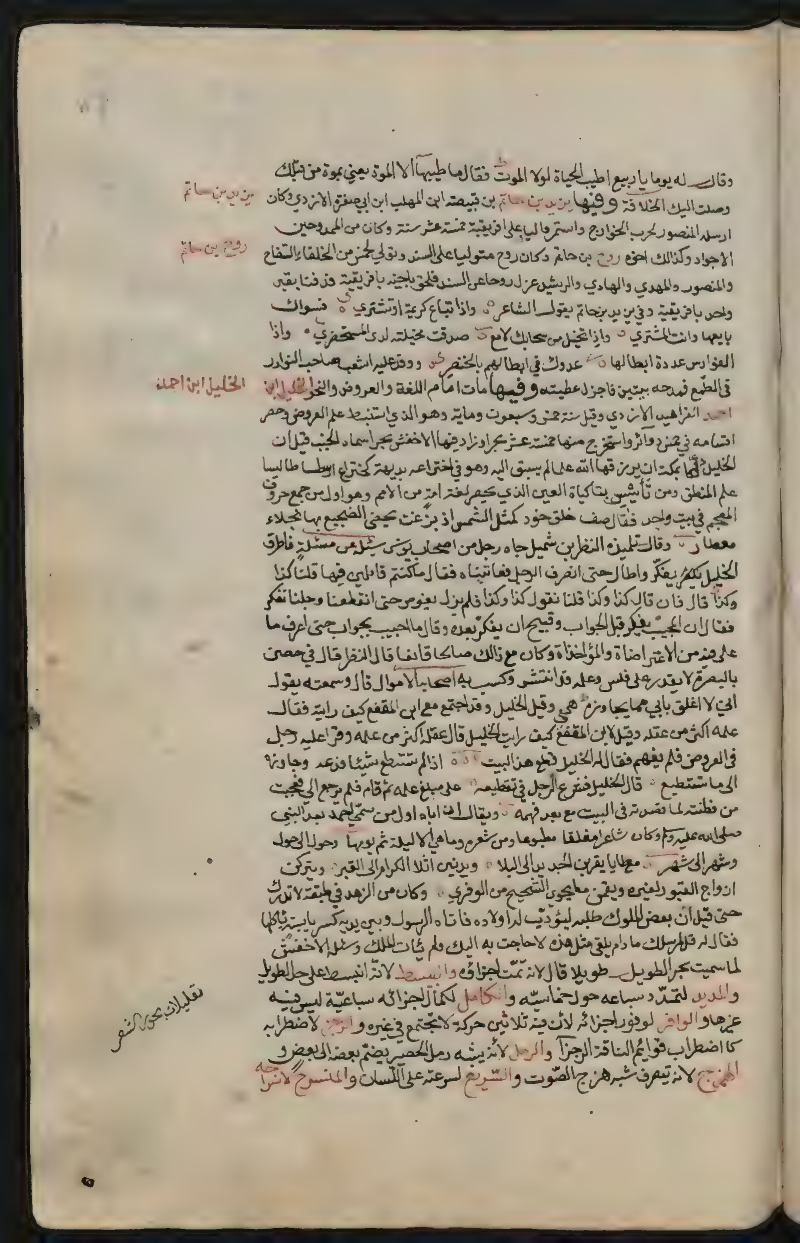 وقال له يوما يا ربيع ما اطيب الحياة لولا الموت فقال ما طيبها الا الموت يعني بموت من قبلك
وصلت اليك الخلافة وفيها يزيد بن حاتم بن قبيصة ابن المهلب ابن ابي صفرة الازدي وكان
يزيد بن حاتم
ارسله المنصور لحرب الخوارج واستمر واليا على افريقية خمسة عشر سنة وكان من الممدوحين
الاجواد وكذلك اخوه روح بن حاتم وكان روح متوليا على السند وتولى لخمس من الخلفاء السفاح
روح بن حاتم
والمنصور والمهدي والهادي والرشيد عزل روحا عن السند فلحق باخيه بافريقية فدفنا بقبر
واحد بافريقية وفي يزيد بن حاتم يقول الشاعر واذا تباع كريمة او تشترى فسواك
بايعها وانت المشتري واذا تخيل من سحابك لامع صدقت مخيلته لدى المستمطري واذا
الفوارس عددت ابطالها عدوك في ابطالهم بالخنصر ووفد عليه اشعب صاحب النوادر
في الطمع فمدحه ببيتين فاجزل عطيته وفيها مات امام اللغة والعروض والنحو الخليل ابن
الخليل ابن احمد
احمد الفراهيدي الازدي وقيل سنة خمس وسبعون وماية وهو الذي استنبط علم العروض وحصر
اقسامه في خمس دوائر واستخرج منها خمسة عشر بحرا وزاد فيها الاخفش بحرا سماه الخبب قيل ان
الخليل دعا بمكة ان يرزقه الله علما لم يسبق اليه وهو في اختراعه بديهة كاختراع ارسطا طاليس
علم المنطق ومن تأسيس بناء كتاب العين الذي يحصر لغة امة من الامم وهو اول من جمع حروف
المعجم في بيت واحد فقال صف خلق خود كمثل الشمس اذ بزغت يحظى الضجيع بها نجلاء
معطار وقال تلميذه النضر بن شميل جاء رجل من اصحاب يونس يسئله عن مسئلة فاطرق
الخليل يفكر واطال حتى انصرف الرجل فعاتبناه فقال ما كنتم قائلين فيها قلنا كذا
وكذا قال فان قال كذا وكذا قلنا نقول كذا وكذا فلم يزل يغوص حتى انقطعنا وجلسنا نفكر
فقال ان المجيب يفكر قبل الجواب وقبيح ان يفكر بعده وقال ما اجيب بجواب حتى اعرف ما
علي فيه من الاعتراضات والمؤاخذة وكان مع ذالك صالحا قانعا قال النضر اقام في خص
بالبصرة لا يقدر على فلس وعلمه قد انتشر وكسب به اصحابه الاموال قال وسمعته يقول
اني لاغلق بابي فما يجاوزه همي وقيل للخليل وقد اجتمع مع ابن المقفع كيف رايته فقال
علمه اكثر من عقله وقيل لابن المقفع كيف رايت الخليل قال عقله اكثر من علمه وقرا عليه رجل
في العروض فلم يفهم فقال له الخليل قطع هذا البيت اذا لم تستطع شيئا فدعه وجاوزه
الى ما تستطيع قال الخليل فشرع الرجل في تقطيعه على مبلغ علمه ثم قام فلم يرجع الي فعجبت
من فطنته لما قصدته في البيت مع بعد فهمه ويقال ان اباه اول من سمي احمد بعد النبي
صلى الله عليه وسلم وكان شاعرا مفلقا مطبوعا ومن شعره وما هي الا ليلة ثم يومها وحول الى حول
وشهر الى شهر مطايا يقربن الجديد الى البلا ويدنين اشلاء الكرام الى القبر ويتركن
ازواج الغيور لغيره ويقسمن ما يحوي الشحيح من الوفري وكان من الزهد في طبقة لا تدرك
حتى قيل ان بعض الملوك طلبه ليؤدب له اولاده فاتاه الرسول وبين يديه كسر يابسة ياكلها
فقال له قل لمرسلك ما دام يلقى مثل هذه لا حاجت به اليك ولم يأت الملك وسئله الاخفش
لما سميت بحر الطويل طويلا قال لانه تمت اجزائه والبسيط لانه انبسط على حد الطويل
والمديد لتمدد سباعيه حول خماسيه والكامل لكمال اجزائه سباعية ليس فيه
غيرها والوافر لوفور اجزائه لان فيه ثلاثين حركة لا تجتمع في غيره والرجز لاضطرابه
كاضطراب قوائم الناقة الرجزاء والرمل لانه يشبه رمل الحصير يضم بعضه الى بعض و
الهزج لانه تصرف شبه هزج الصوت والسريع لسرعته على اللسان والمنسرح لانسراحه
تعليلات بحور الشعر